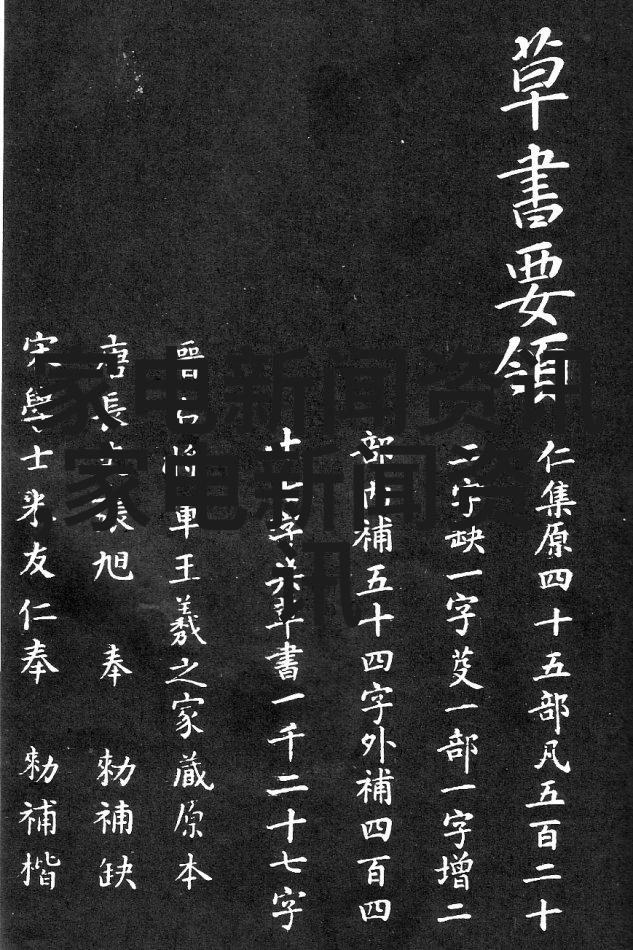 草書要領
仁集原四十五部凡五百二十
二字缺一字芟一部一字增二
部內補五十四字外補四百四
十七字共草書一千二十七字
晉右將軍王羲之家藏原本
唐長史張旭 奉 勅補缺
宋學士米友仁奉 勅補楷
家电新闻资讯
家电新闻资
讯